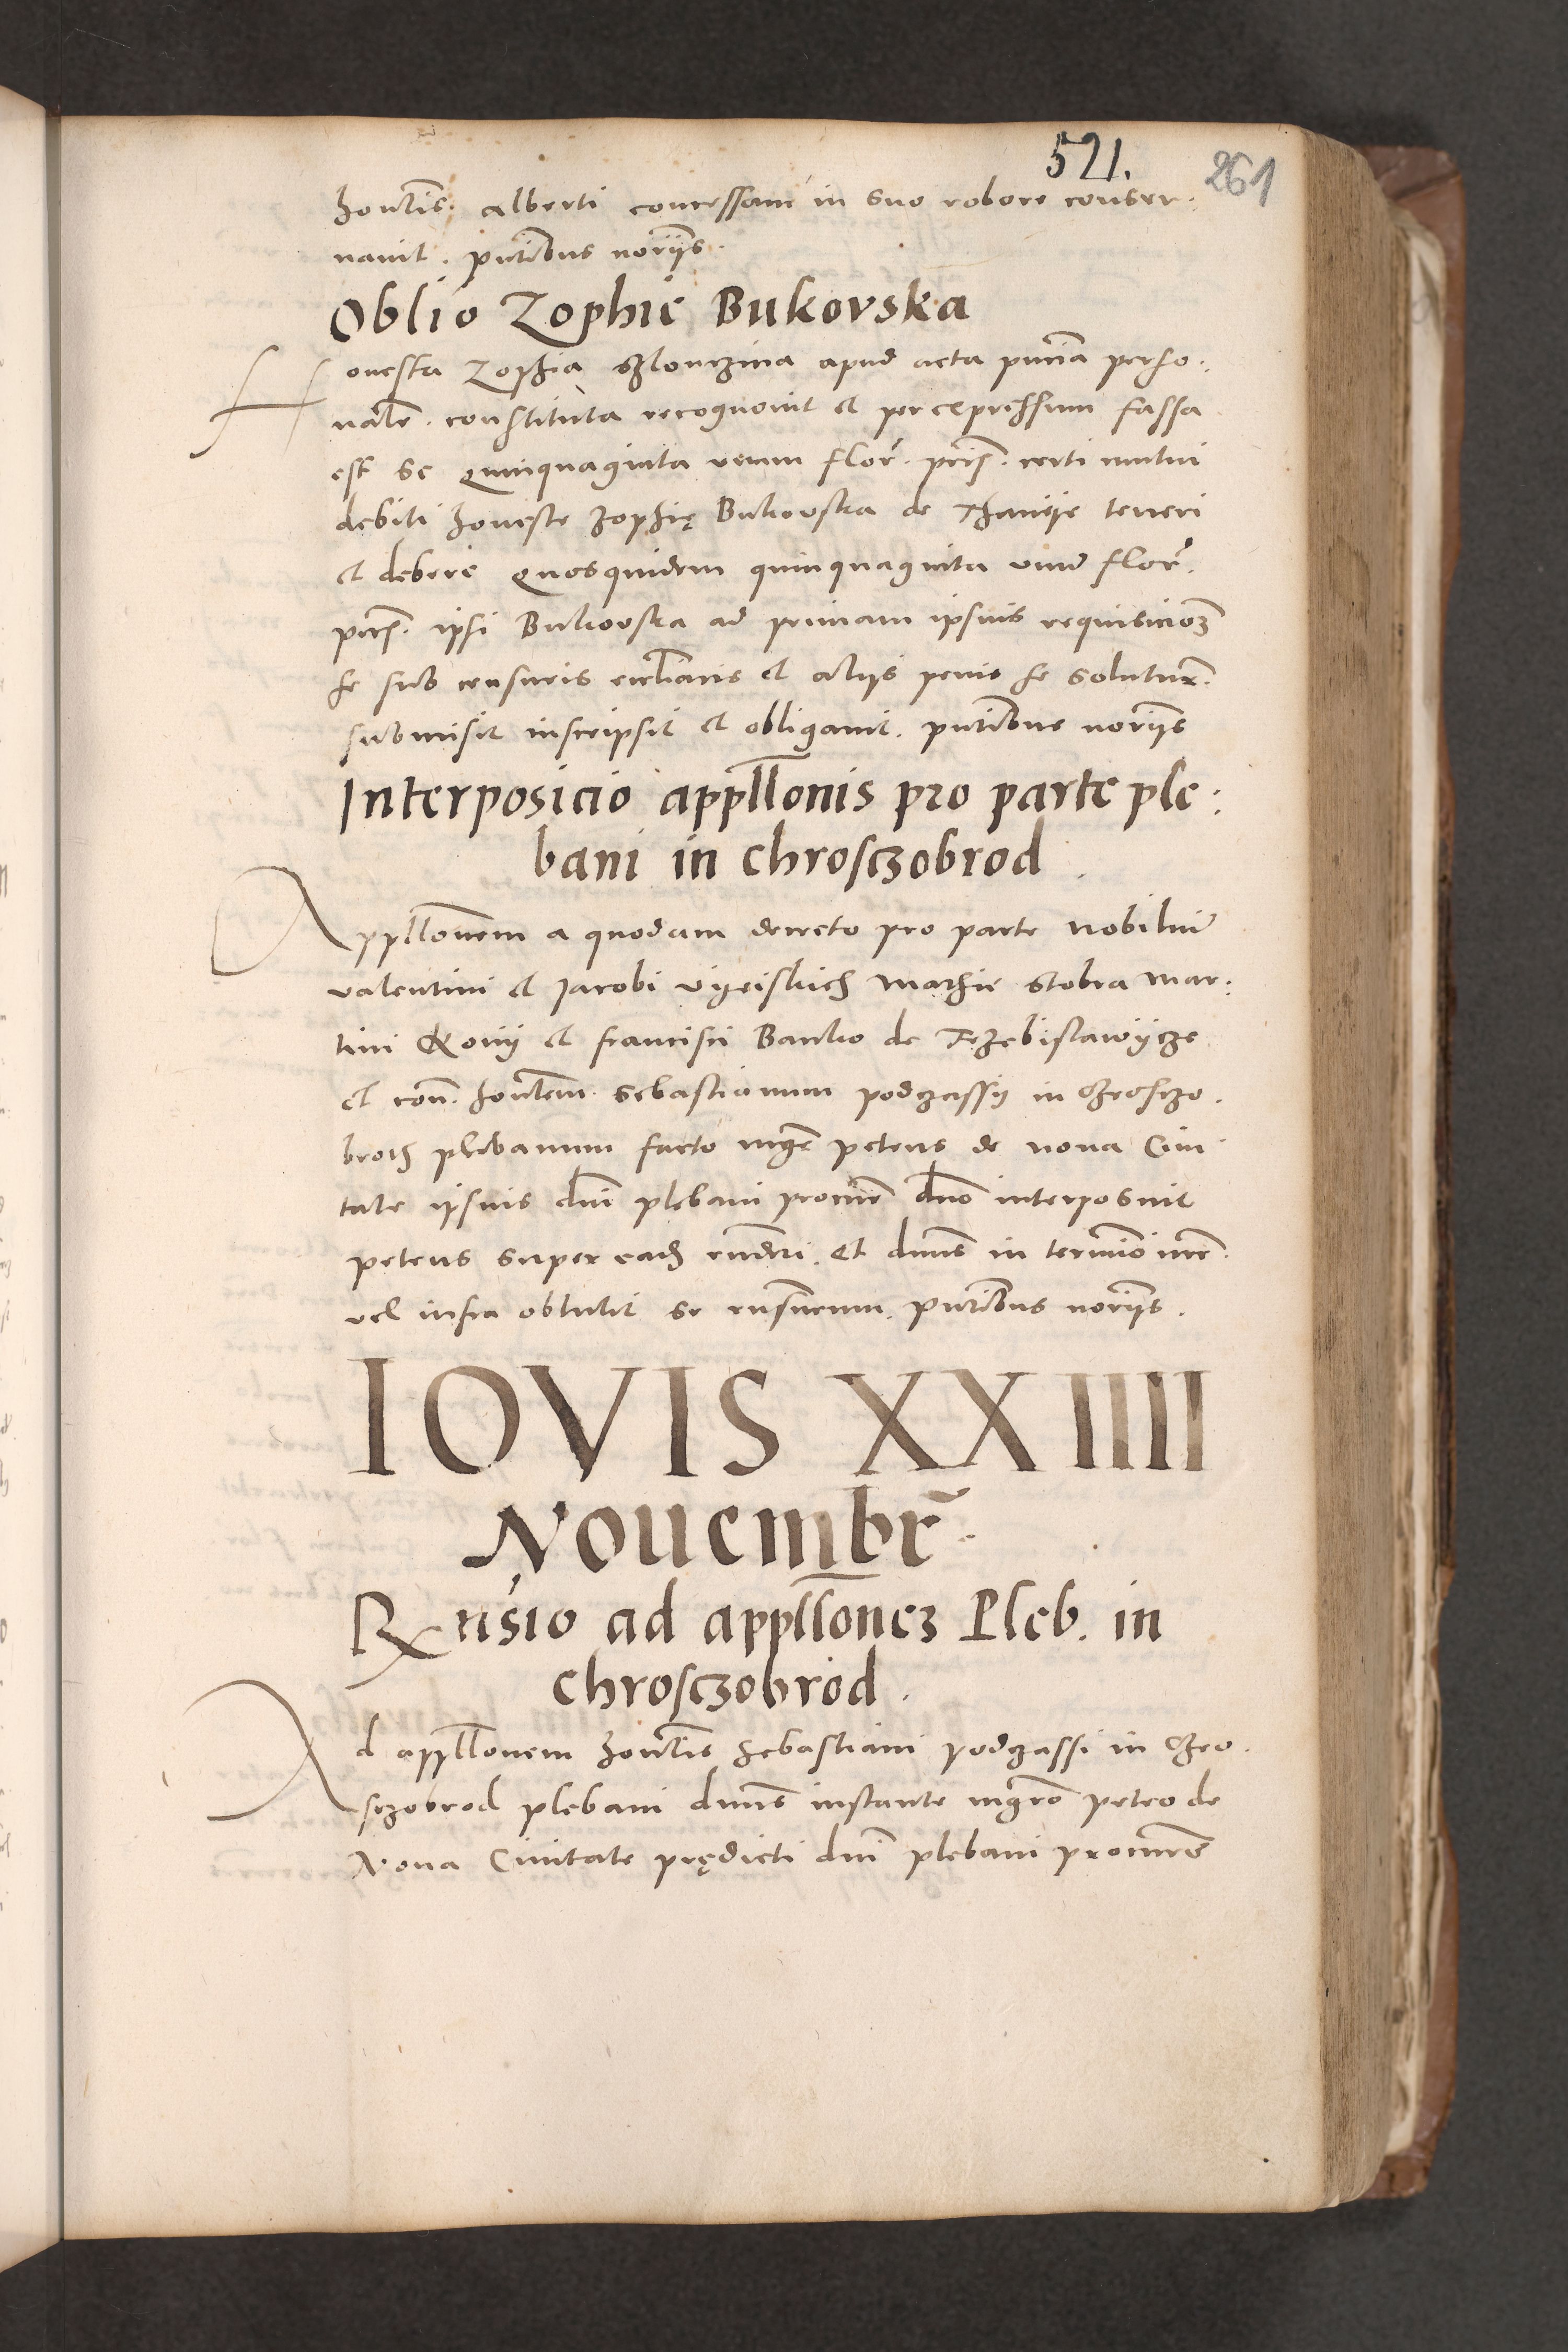 521.
261
honlis. Alberti concessam in suo robore conser.
nauit. pntibus noriis.
Oblio Zophie Bukovska
Honesta Zophia apud acta pntia perso.
nalr. constituta recognouit et per expressum fassa
est se quinquaginta unum flor. pecu. certi mutui
debiti honeste Zophię Bukovska de teneri
et debere quosquidem quinquaginta unum flor.
pecu. ipsi Bukovska ad primam ipsius requisicionẽ
se sub censuris ecclīacis et aliis penis se soluturā.
submisit inscripsit et obligauit. pntibus noriis
Interposicio appllonis pro parte ple:
bani in chrosczobrod
Appllonem a quodam decreto pro parte Nobiliũ
Valentini et Jacobi Mathie Stobra Mar.
tini et Francisci Banko de Trzebislawycze
et con. honlem. Sebastianum podczassy in Chrosczo.
broth plebanum facto mgr petrus de noua Ciui
tate ipsius dni plebani procur dno interposuit
petens super eadẽ rñderi. Et dnus in termĩo iure.
vel infra obtulit se rñsurum. pntibus noriis.
IOVIS XXIIII
Nouembr̃.
Rñsio ad appllonez Pleb. in
chrosczobrod.
Ad appllonem honlis Sebastiani podczassi in Chro.
sczobrod plebani dnus instante mgro petro de
Noua Ciuitate prędicti dni plebani procure